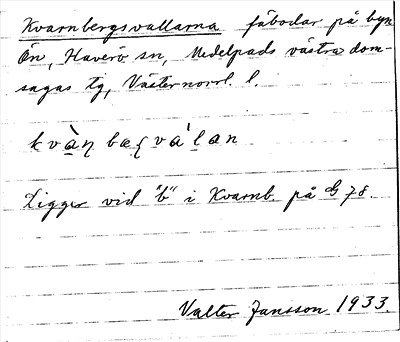 Kvarnbergsvallarna fäbodar på byn
Ön, Haverö sn, Medelpads västra dom-
sagas tg, Västernorrl. l.
kvàn̥ bæʃválan
Ligger vid "b" i Kvarnb. på G 78.
Valter Jansson 1933.